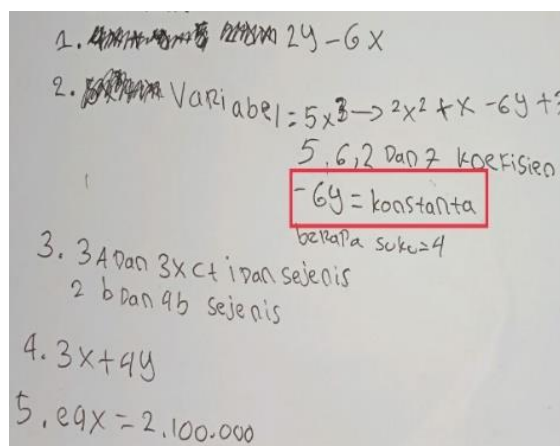 1. 2y - 6x
2. Variabel = 5x3 → 2x² + x - 6y +
5, 6, 2 Dan 7 koefisien
-6y = konstanta
berapa suku = 4
3. 3A Dan 3x ct i Dan sejenis
2 b Dan 9b sejenis
4. 3x + 4y
5. eqx = 2.100.000